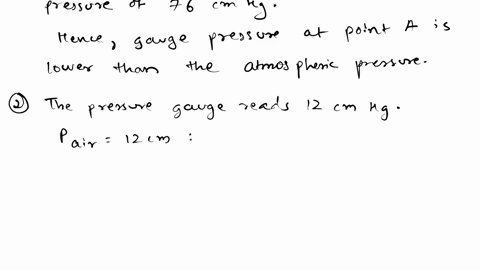 pressure of 76 cm Hg.
Hence, gauge pressure at point A is
lower than the atmospheric pressure.
② The pressure gauge reads 12 cm Hg.
P air = 12 cm :